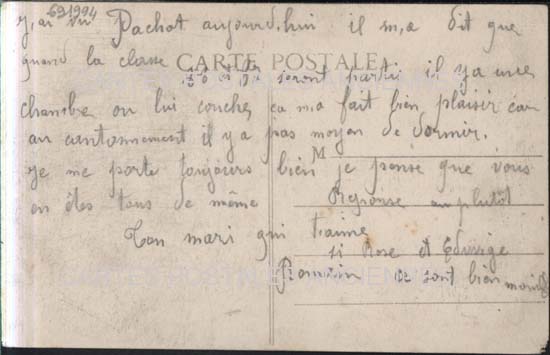 691994
j,ai vu Pachot aujourd,hui il m,a dit que
quand la classe
CARTE POSTALE
seront parti il y a une
chambre ou lui coucher ça m,a fait bien plaisir car
au cantonnement il y a pas moyen de dormir.
M
je me porte toujours bien je pense que vous
en êtes tous de même
Reponse au plutôt
Ton mari qui t,aime
si Rose et Edwige
Romain ce sont bien